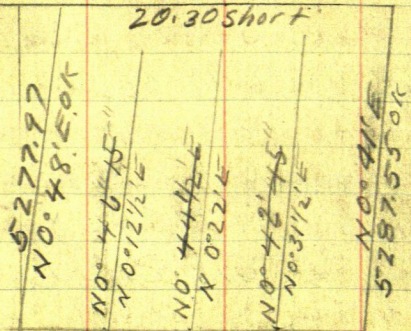 20.30 short
5277.97
N0° 48' E.OK
N0° 46' 15"
N0° 12 1/2' E
N0° 44 1/2' E
N 0° 22' E
N0° 42' 45"
N0° 31 1/2' E
N0° 41' E
5287.55 OK